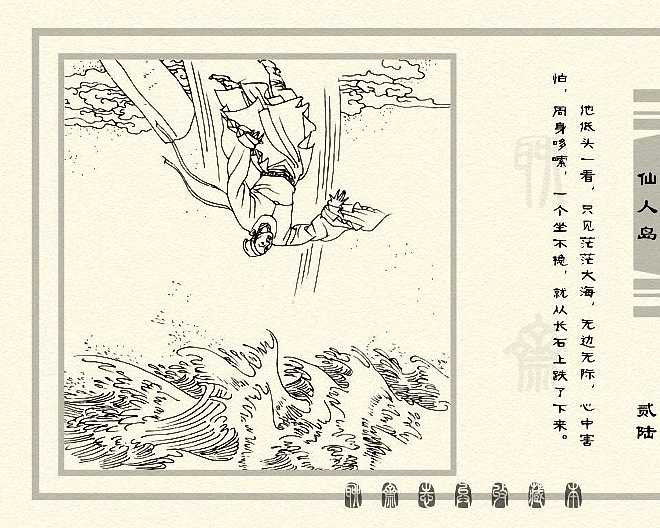 仙人岛
贰陆
他低头一看，只见茫茫大海，无边无际，心中害
怕，周身哆嗦，一个坐不稳，就从长石上跌了下来。